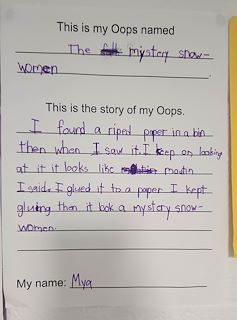 This is my Oops named
The mystery snow-
women
This is the story of my Oops.
I found a riped paper in a bin
then when I saw it. I keep on looking
at it it looks like moutin
I said. I glued it to a paper I kept
gluing then it bok a mystory snow-
women.
My name: Mya